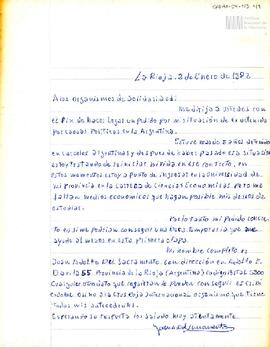 La Rioja, 2 de Enero de 1982
A los organismos de Solidaridad:
Me dirijo a ustedes con
el fin de hacer llegar un pedido por mi situación de ex detenido
por causas Políticas en la Argentina.
Estuve años detenido
en cárceles argentinas y después de haber pasado esa situación
estoy tratando de reiniciar mi vida en ese contexto, en
estos momentos estoy a punto de ingresar en la universidad de
mi Provincia en la carrera de Ciencias Económicas. Pero me
faltan medios económicos que hagan posible mis deseos de
estudiar.
Por lo tanto mi pedido concre
to es si me podrían conseguir una Beca temporaria que
ayude al menos en esta primera etapa.
Mi nombre completo es
Juan Rodolfo Del Sacramento, con dirección en Adolfo E.
Dávila 55 Provincia de la Rioja (Argentina) código Postal 5300
Cualquier otro dato que requieran lo pueden conseguir es
de la Cruz Roja Internacional organismo que tiene
todos mis antecedentes.
saludo muy atentamente.